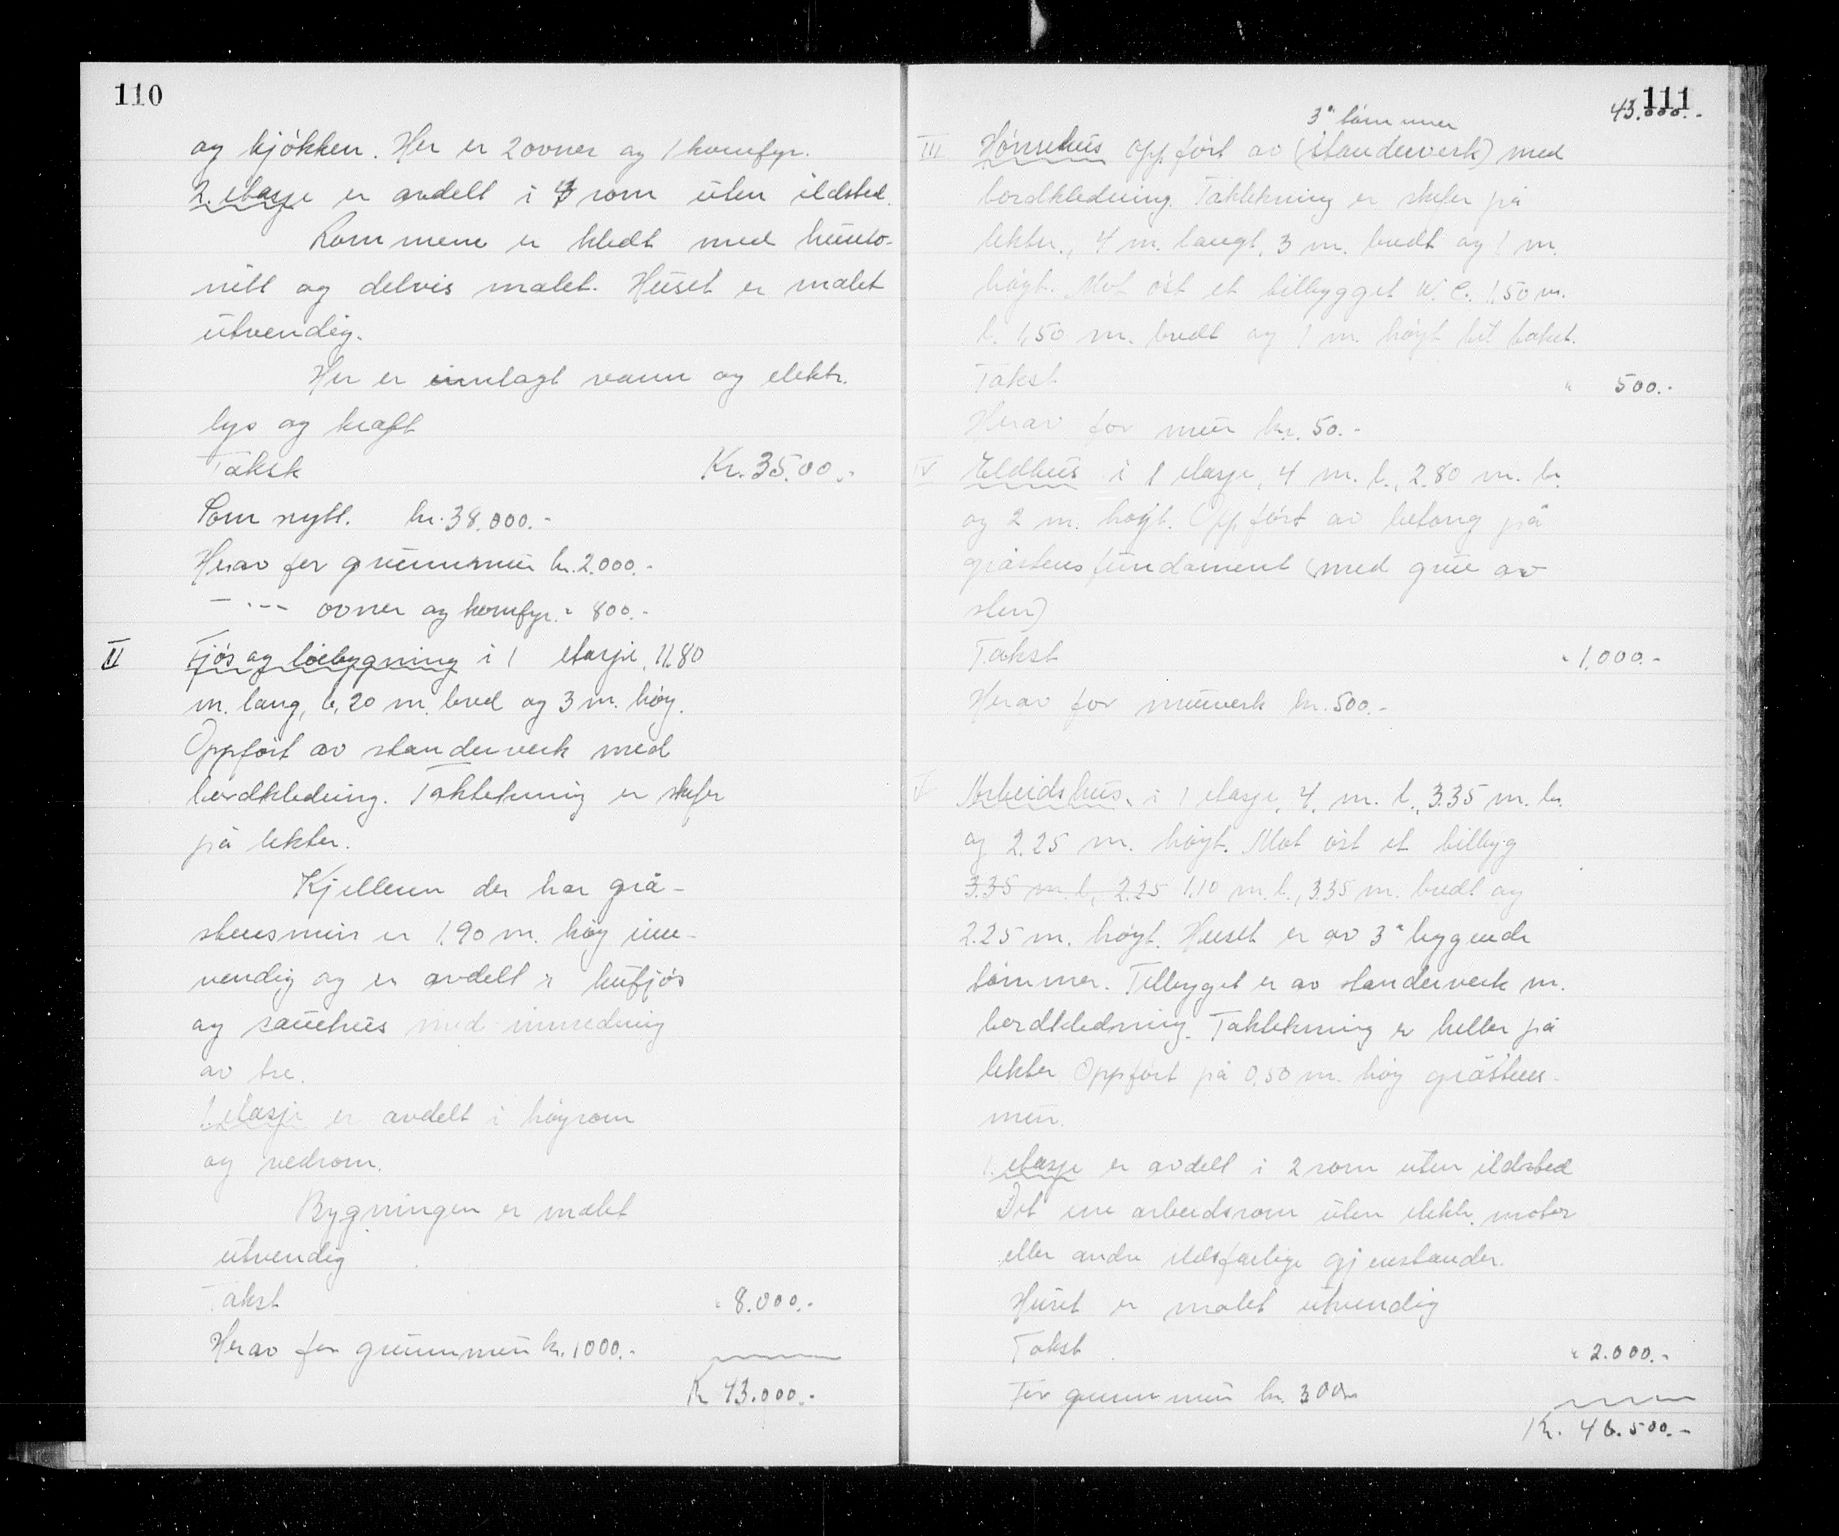 110
og kjøkken. Her er 2 ovner og 1 komfyr.
2. etasje er avdelt i 4 rom uten ildsted.
Rommene er kledt med hunto-
nitt og delvis malet. Huset er malet
utvendig.
Her er innlagt vann og elektr.
lys og kraft
Takst Kr. 35.00.-
Som nytt. kr. 38.000.-
Herav for grunnmur kr. 2.000.-
- " - ovner og komfyr. " 800.-
II Fjös og löebygning i 1 etasje, 11.80
m. lang, 6,20 m. bred og 3 m. høy.
Oppfört av standerverk med
bordkledning. Taktekning er skifer
på lekter.
Kjelleren der har grå-
stensmur er 1.90 m. høy inn-
vendig og er avdelt i kufjös
og sauehus med innredning
av tre.
1. etasje er avdelt i höyrom
og vedrom.
Bygningen er malet
utvendig
Takst " 8.000.-
Herav for grunnmur kr. 1000.-
Kr 43.000.-
111
43.000.-
3" tömmer
III Hønsehus oppfört av (standerverk) med
bordkledning. Taktekning er skifer på
lekter., 4 m. langt, 3 m. bredt og 1 m.
høyt. Mot öst et tilbygget W.C. 1,50 m.
l. 1,50 m. bredt og 1 m. høyt til taket.
Takst " 500.-
Herav for mur kr. 50.-
IV Eldhus i 1 etasje, 4 m. l., 2.80 m. br.
og 2 m. høyt. Oppfört av betong på
gråstensfundament (med grue av
sten)
Takst " 1.000.-
Herav for murverk kr. 500.-
V Arbeidshus. i 1 etasje, 4. m. l., 3.35 m. br.
og 2.25 m. høyt. Mot öst et tilbygg
3.35 m. l, 2.25 1.10 m. l., 3.35 m. bredt og
2.25 m. høyt. Huset er av 3" bygende
tömmer. Tilbygget er av standerverk m.
bordkledning. Taktekning er heller på
lekter Oppfört på 0,50 m. høy gråstens-
mur.
1. etasje er avdelt i 2 rom uten ildsted
Det ene arbeidsrom uten elektr. motor
eller andre ildsfarlige gjenstander.
Huset er malet utvendig
Takst " 2.000.-
For grunnmur kr. 300.-
Kr. 46.500.-